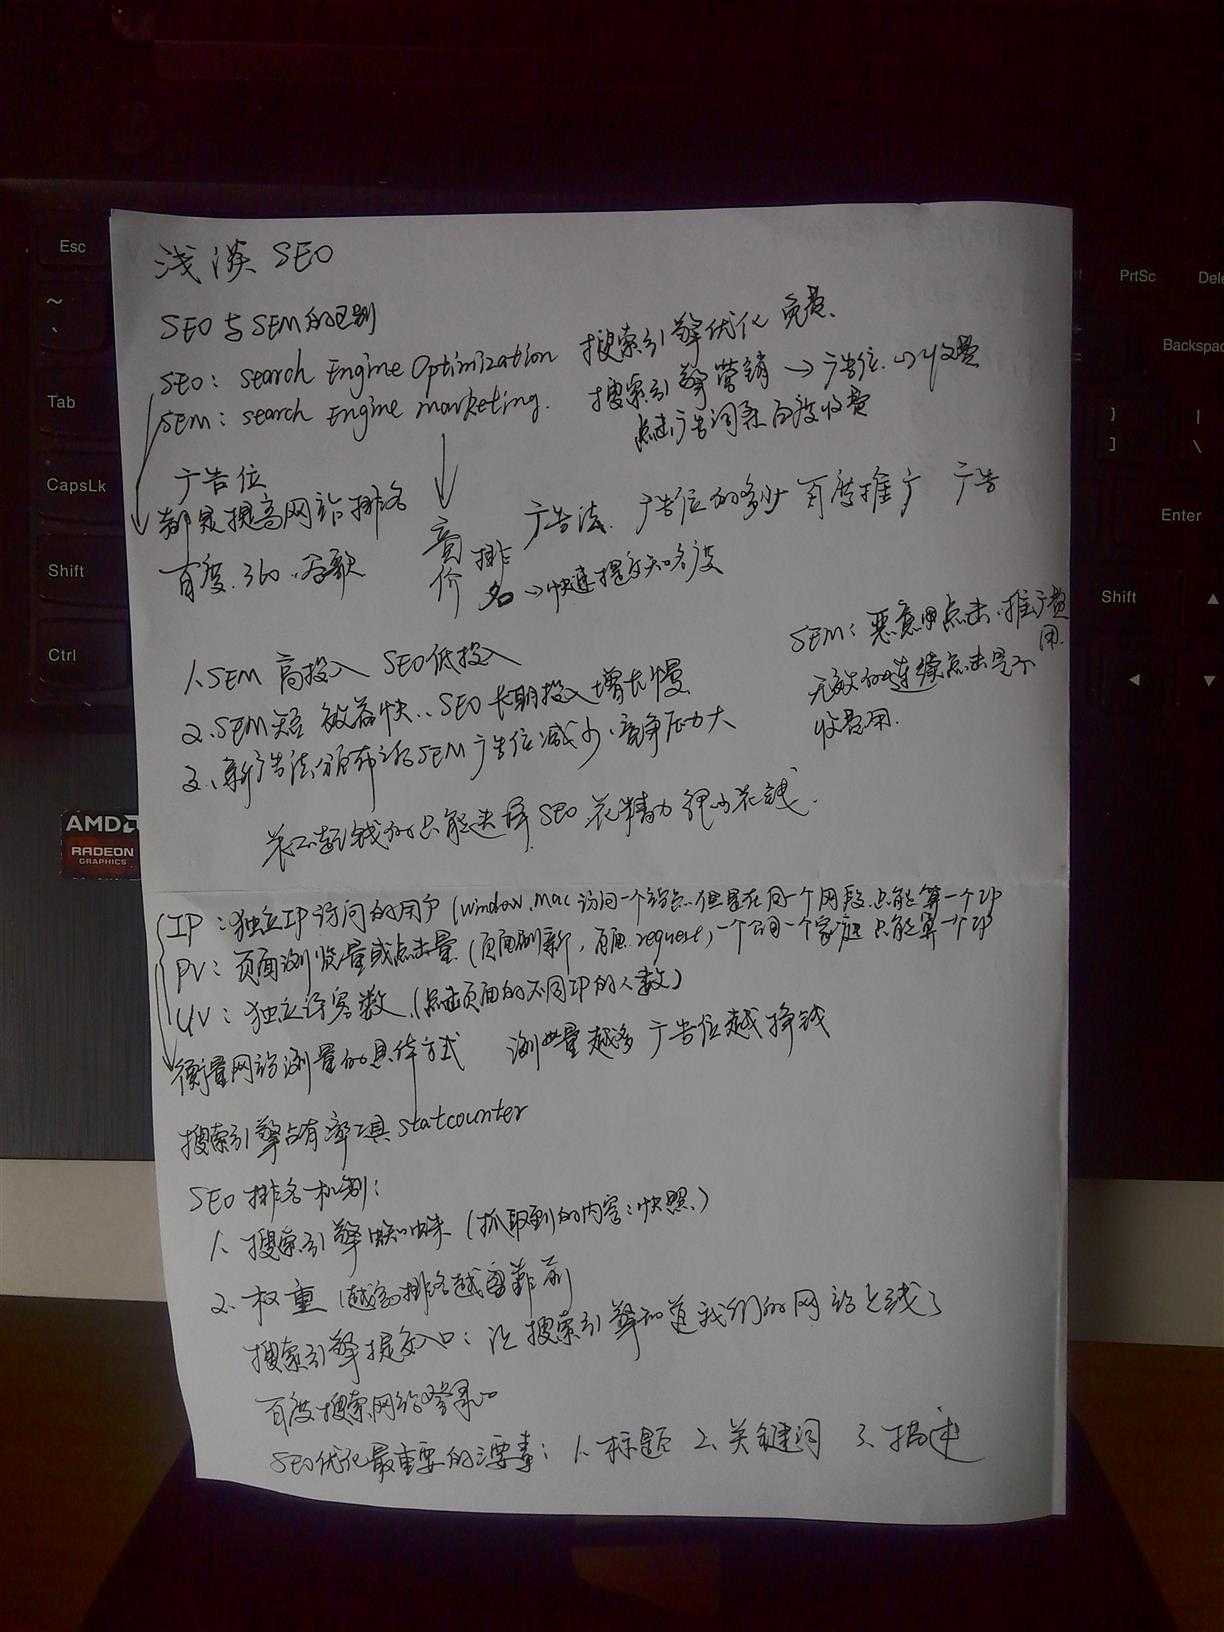 浅淡 SEO
SEO 与 SEM的区别
SEO: search Engine Optimization 搜索引擎优化 免费.
SEM: search Engine marketing. 搜索引擎营销 → 广告位. → 收费
点击广告词条百度收费
广告位
都是提高网站排名
百度. 360. 谷歌
竞价排名 → 快速提高知名度
广告法. 广告位的多少 百度推广 广告
1. SEM 高投入 SEO低投入
2. SEM 效益快.. SEO 长期投入 增长慢
3. 新广告法 SEM 广告位减少. 竞争压力大
SEM: 恶意 点击. 推广费用.
无效的连续点击是不
收费用.
花不起钱的只能选择 SEO 花精力 很少花钱.
IP: 独立IP 访问的用户 (window. mac 访问一个站点. 但是在同一个网段. 只能算一个IP
PV: 页面浏览量或点击量. (页面刷新, request) 一个公司一个家庭 只能算一个IP
UV: 独立访客数. (点击页面的不同IP的人数)
衡量网站测量的具体方式 浏览量越多 广告位越挣钱
搜索引擎占有率工具 statcounter
SEO 排名机制:
1. 搜索引擎蜘蛛 (抓取到的内容: 快照.)
2. 权重 (越高排名越靠前
搜索引擎提交入口: 让 搜索引擎知道我们的网站上线了
百度搜索网站登录口
SEO优化最重要的三要素: 1. 标题 2. 关键词 3. 描述
Esc
~
`
Tab
CapsLk
Shift
Ctrl
AMD
RADEON
GRAPHICS
PrtSc
Backspac
}
]
|
\
Enter
Shift